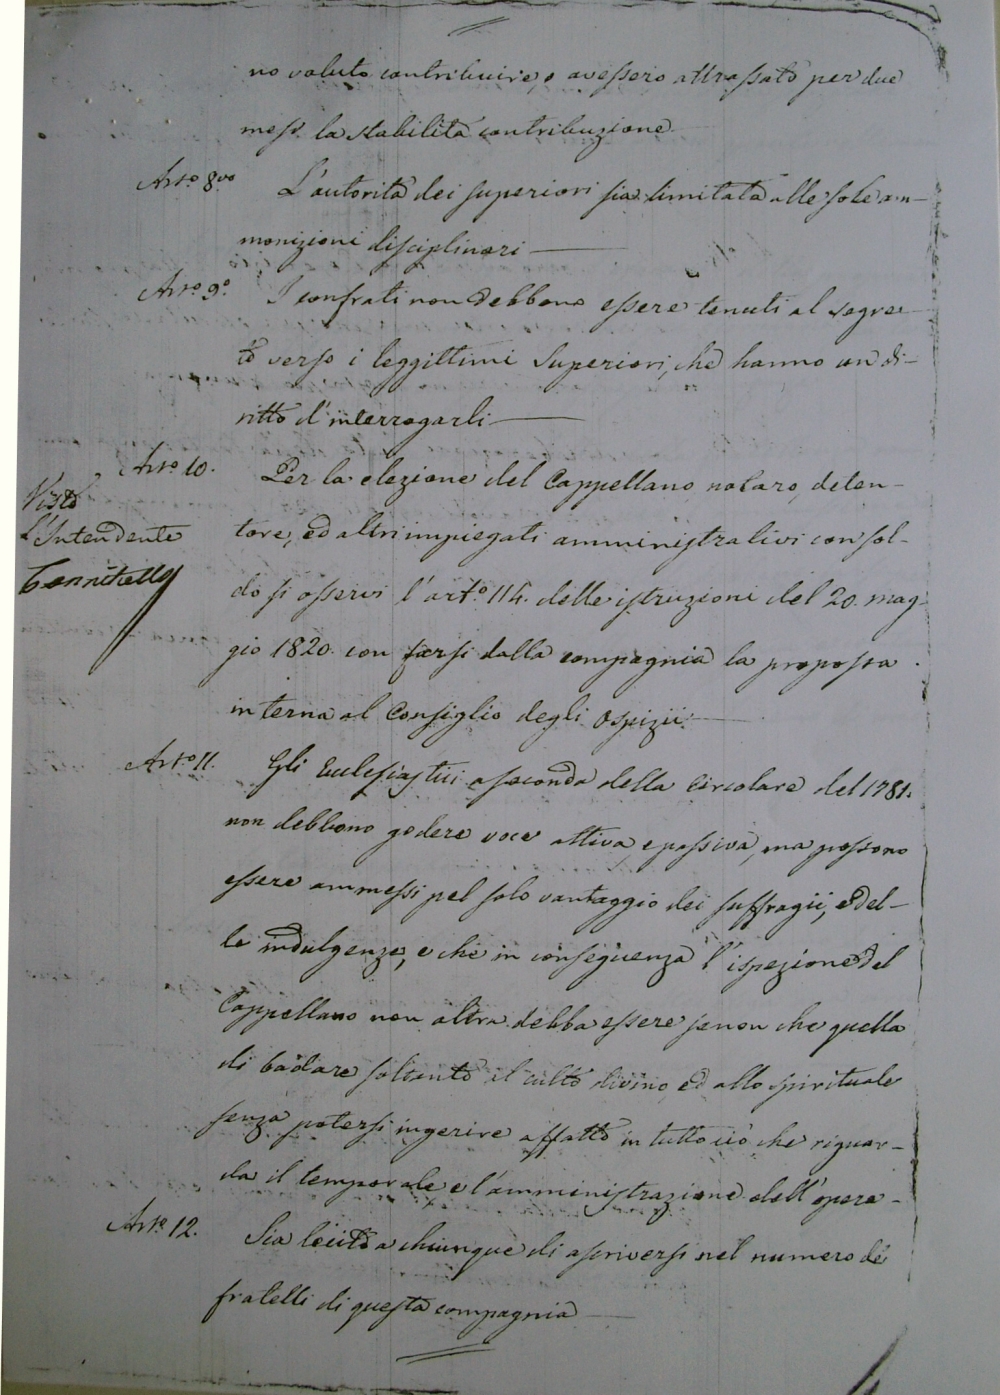 no voluto contribuire, o avessero attrassato per due
mesi la stabilita contribuzione
Art.o 8vo L'autorità dei superiori sia limitata alle sole am-
monizioni disciplinari
Art.o 9o. I confrati non debbono essere tenuti al segre-
to verso i leggittimi Superiori, che hanno un di-
ritto d'interrogarli
Art.o 10. Per la elezione del Cappellano, notaro, deten-
tore, ed altri impiegati amministrativi con sol-
do si osservi l'art.o 114. delle istruzioni del 20. mag-
gio 1820. con farsi dalla compagnia la proposta
interna al Consiglio degli Ospizii
Visto
L'Intendente
Art.o 11. Gli Ecclesiastici a seconda della Circolare del 1781.
non debbono godere voce attiva e passiva, ma possono
essere ammessi pel solo vantaggio dei suffragii, e del-
le indulgenze, e che in conseguenza l'ispezione del
Cappellano non altra debba essere senon che quella
di badare soltanto al culto divino, ed allo spirituale
senza potersi ingerire affatto in tutto ciò che riguar-
da il temporale e l'amministrazione dell'opera-
Art.o 12. Sia lecito a chiunque di ascriversi nel numero dei
fratelli di questa compagnia